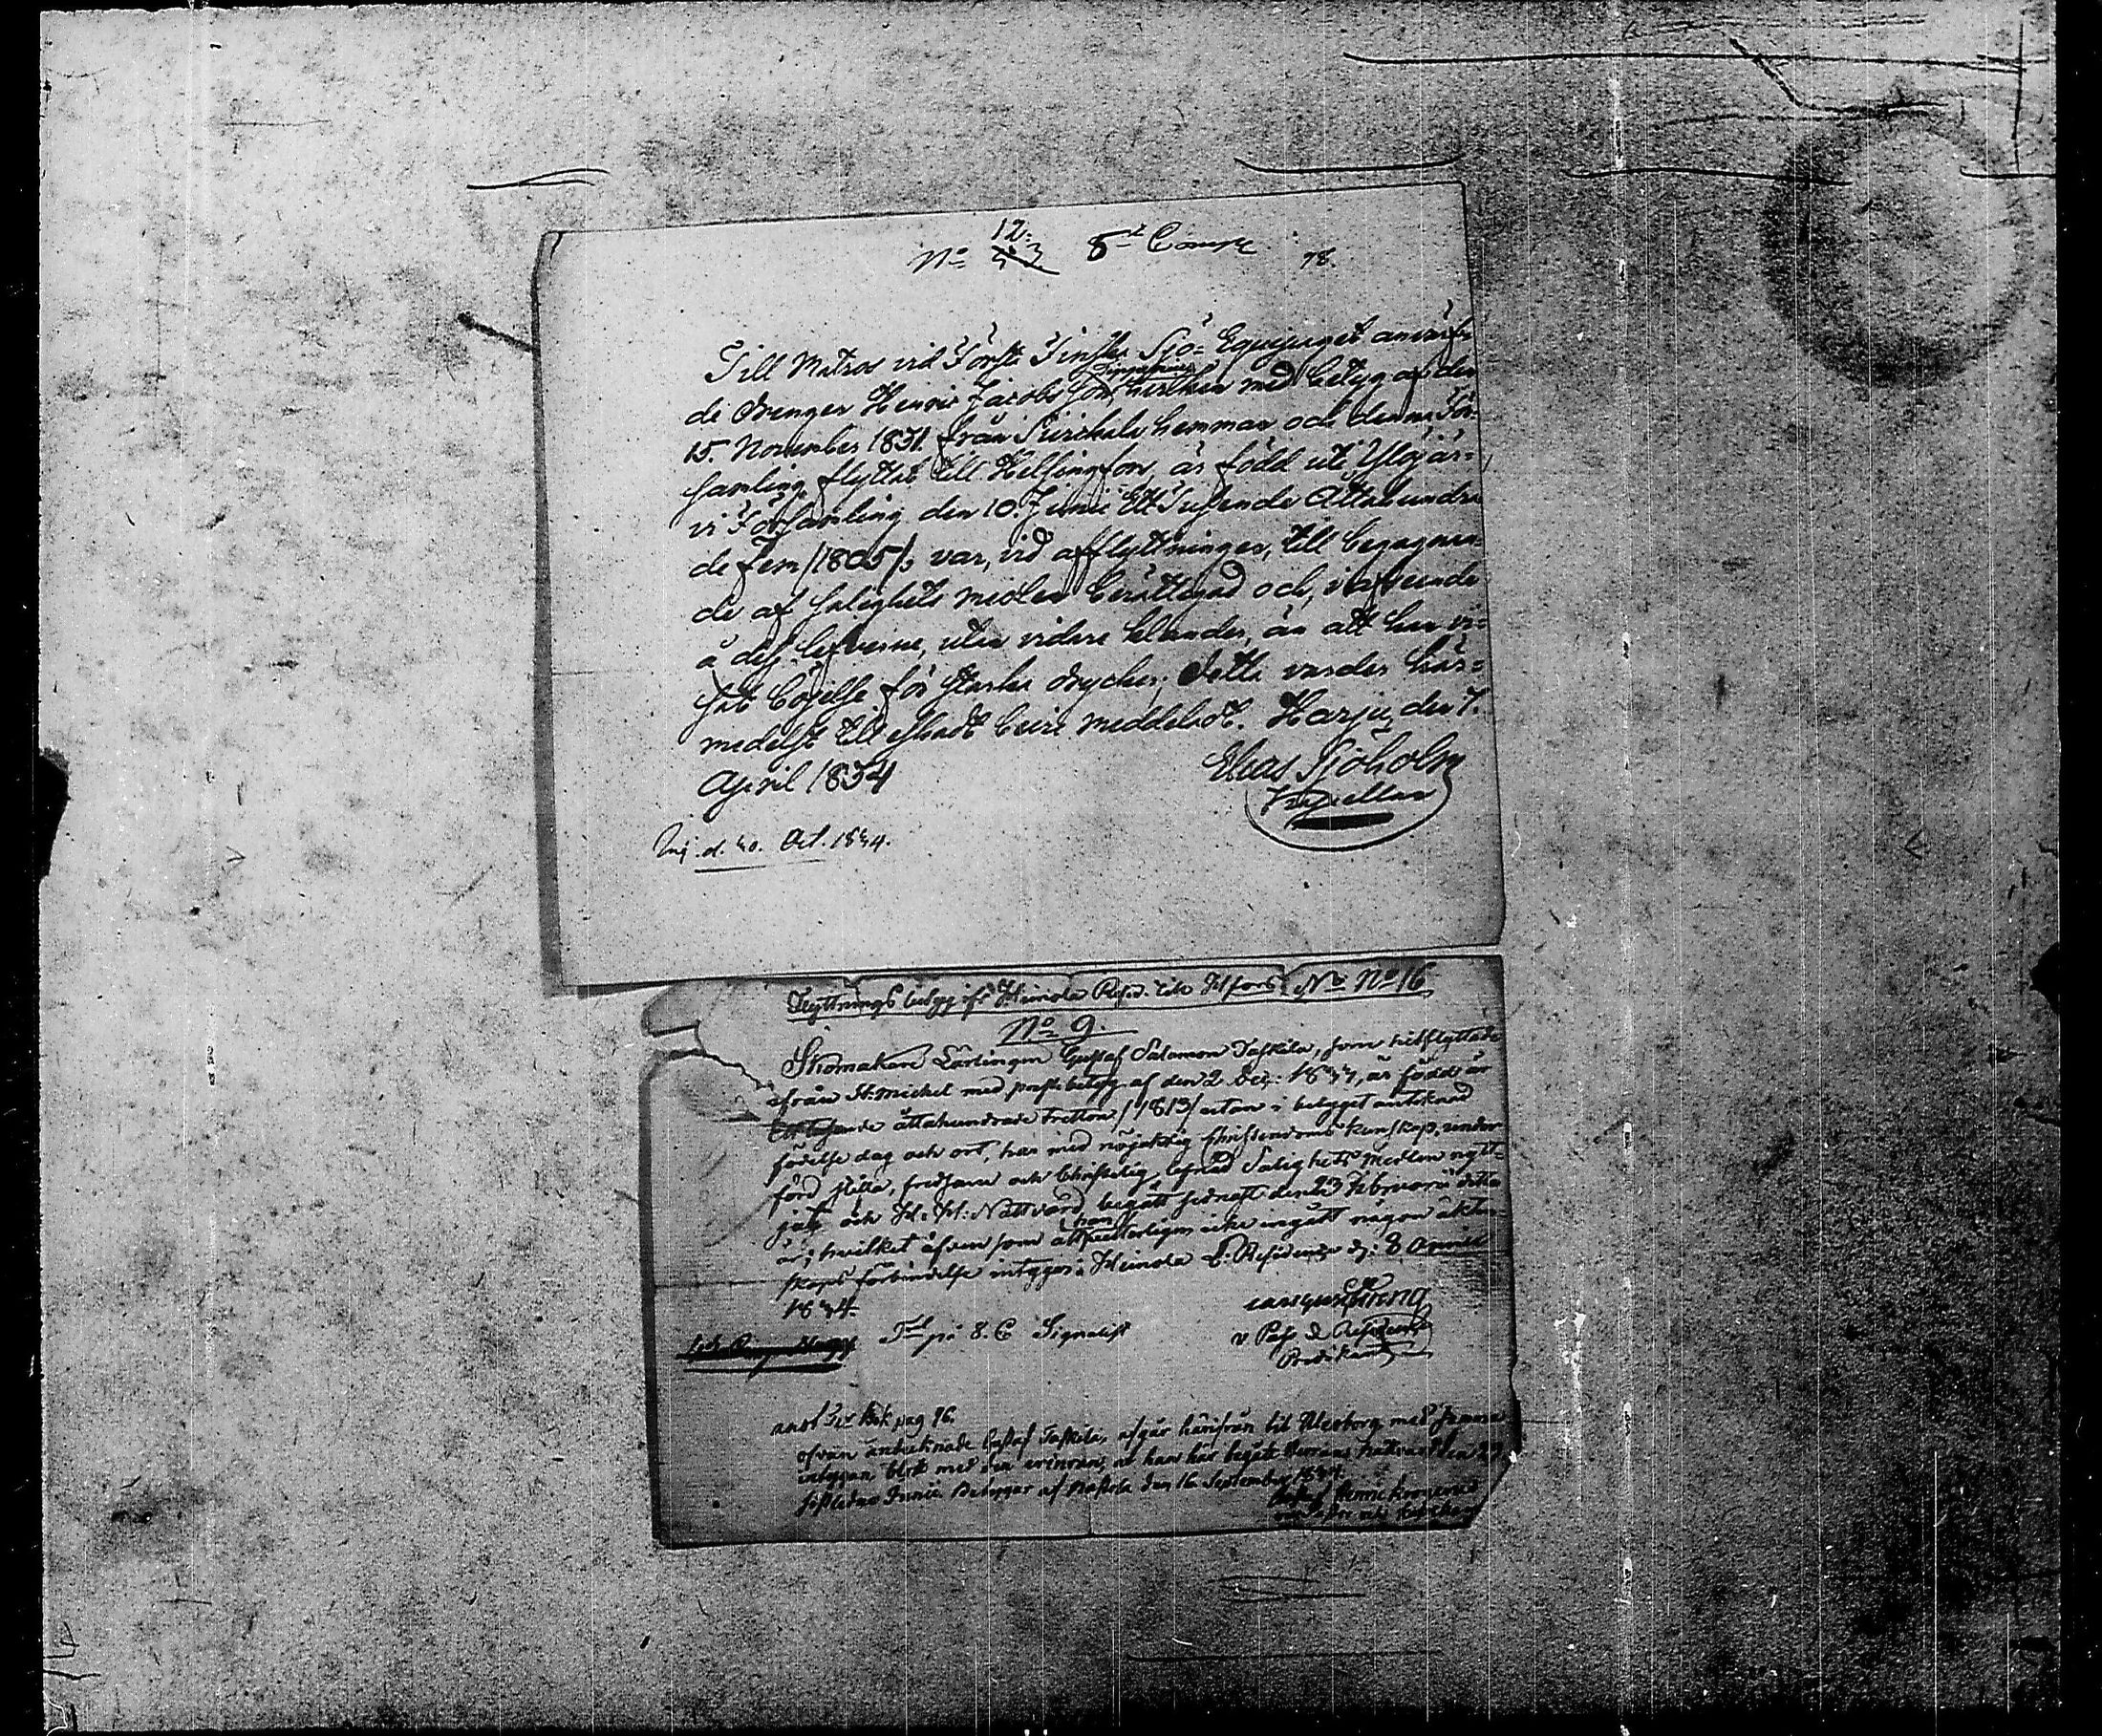 No 12. 8de Comp. 78.
Till Matros vid Första Finska Sjö-Equipaget anväfv-
de Drengen Henric Jacobsson med betyg af den
15. November 1831 från hemman och denna För-
samling flyttat till Helsingfors, är född uti Ylöjär-
vi Församling den 10. Junii Ett Tusende Åttahundra
de Fem /1805/; var, vid afflyttningen, till begagnan-
de af salighets medlen berättigad och, i afseende
å dess lefverne, utan vidare klander, än att han vi-
sat böjelse för starka drycker; Detta varder här-
medelst till eftersadt bevis meddeladt. Harju, den 7.
April 1834
Elias Sjöholm
Kapellan
Inj. d. 20. Oct. 1834.
Flyttnings betyg ifr Heinola Resid. till Hfors No 16
No 9.
Skomakare Lärlingen Gustaf Salomon Taskila, som hitflyttade
från St. Michel med prestbetyg af den 2 Dec: 1833, är född år
Ett tusende åttahundrade Tretton /1813/ utan i betyget antecknad
födelse dag och ort, har med nöjaktig Christendoms kunskap, under
förd stilla, fredsam och Christelig lefnad Salighets medlen nytt-
jat och H. H. Nattvard begått sednast den 23 Februarii detta
år; hvilket äfven som att han icke ingått någon äkten-
skaps förbindelse intygas. Heinola Residence d: 8 April
1834.
på 8. C Signalist
v Past & Residence
Predikant
Bok pag 96.
ofvan antecknade Gustaf Taskila, afgår härifrån till med samma
intygan blott med den erinran, at han har begått Herrans Nattvard den 29
sistledne Junii. Betygar af Nastola den 16 September 1834.